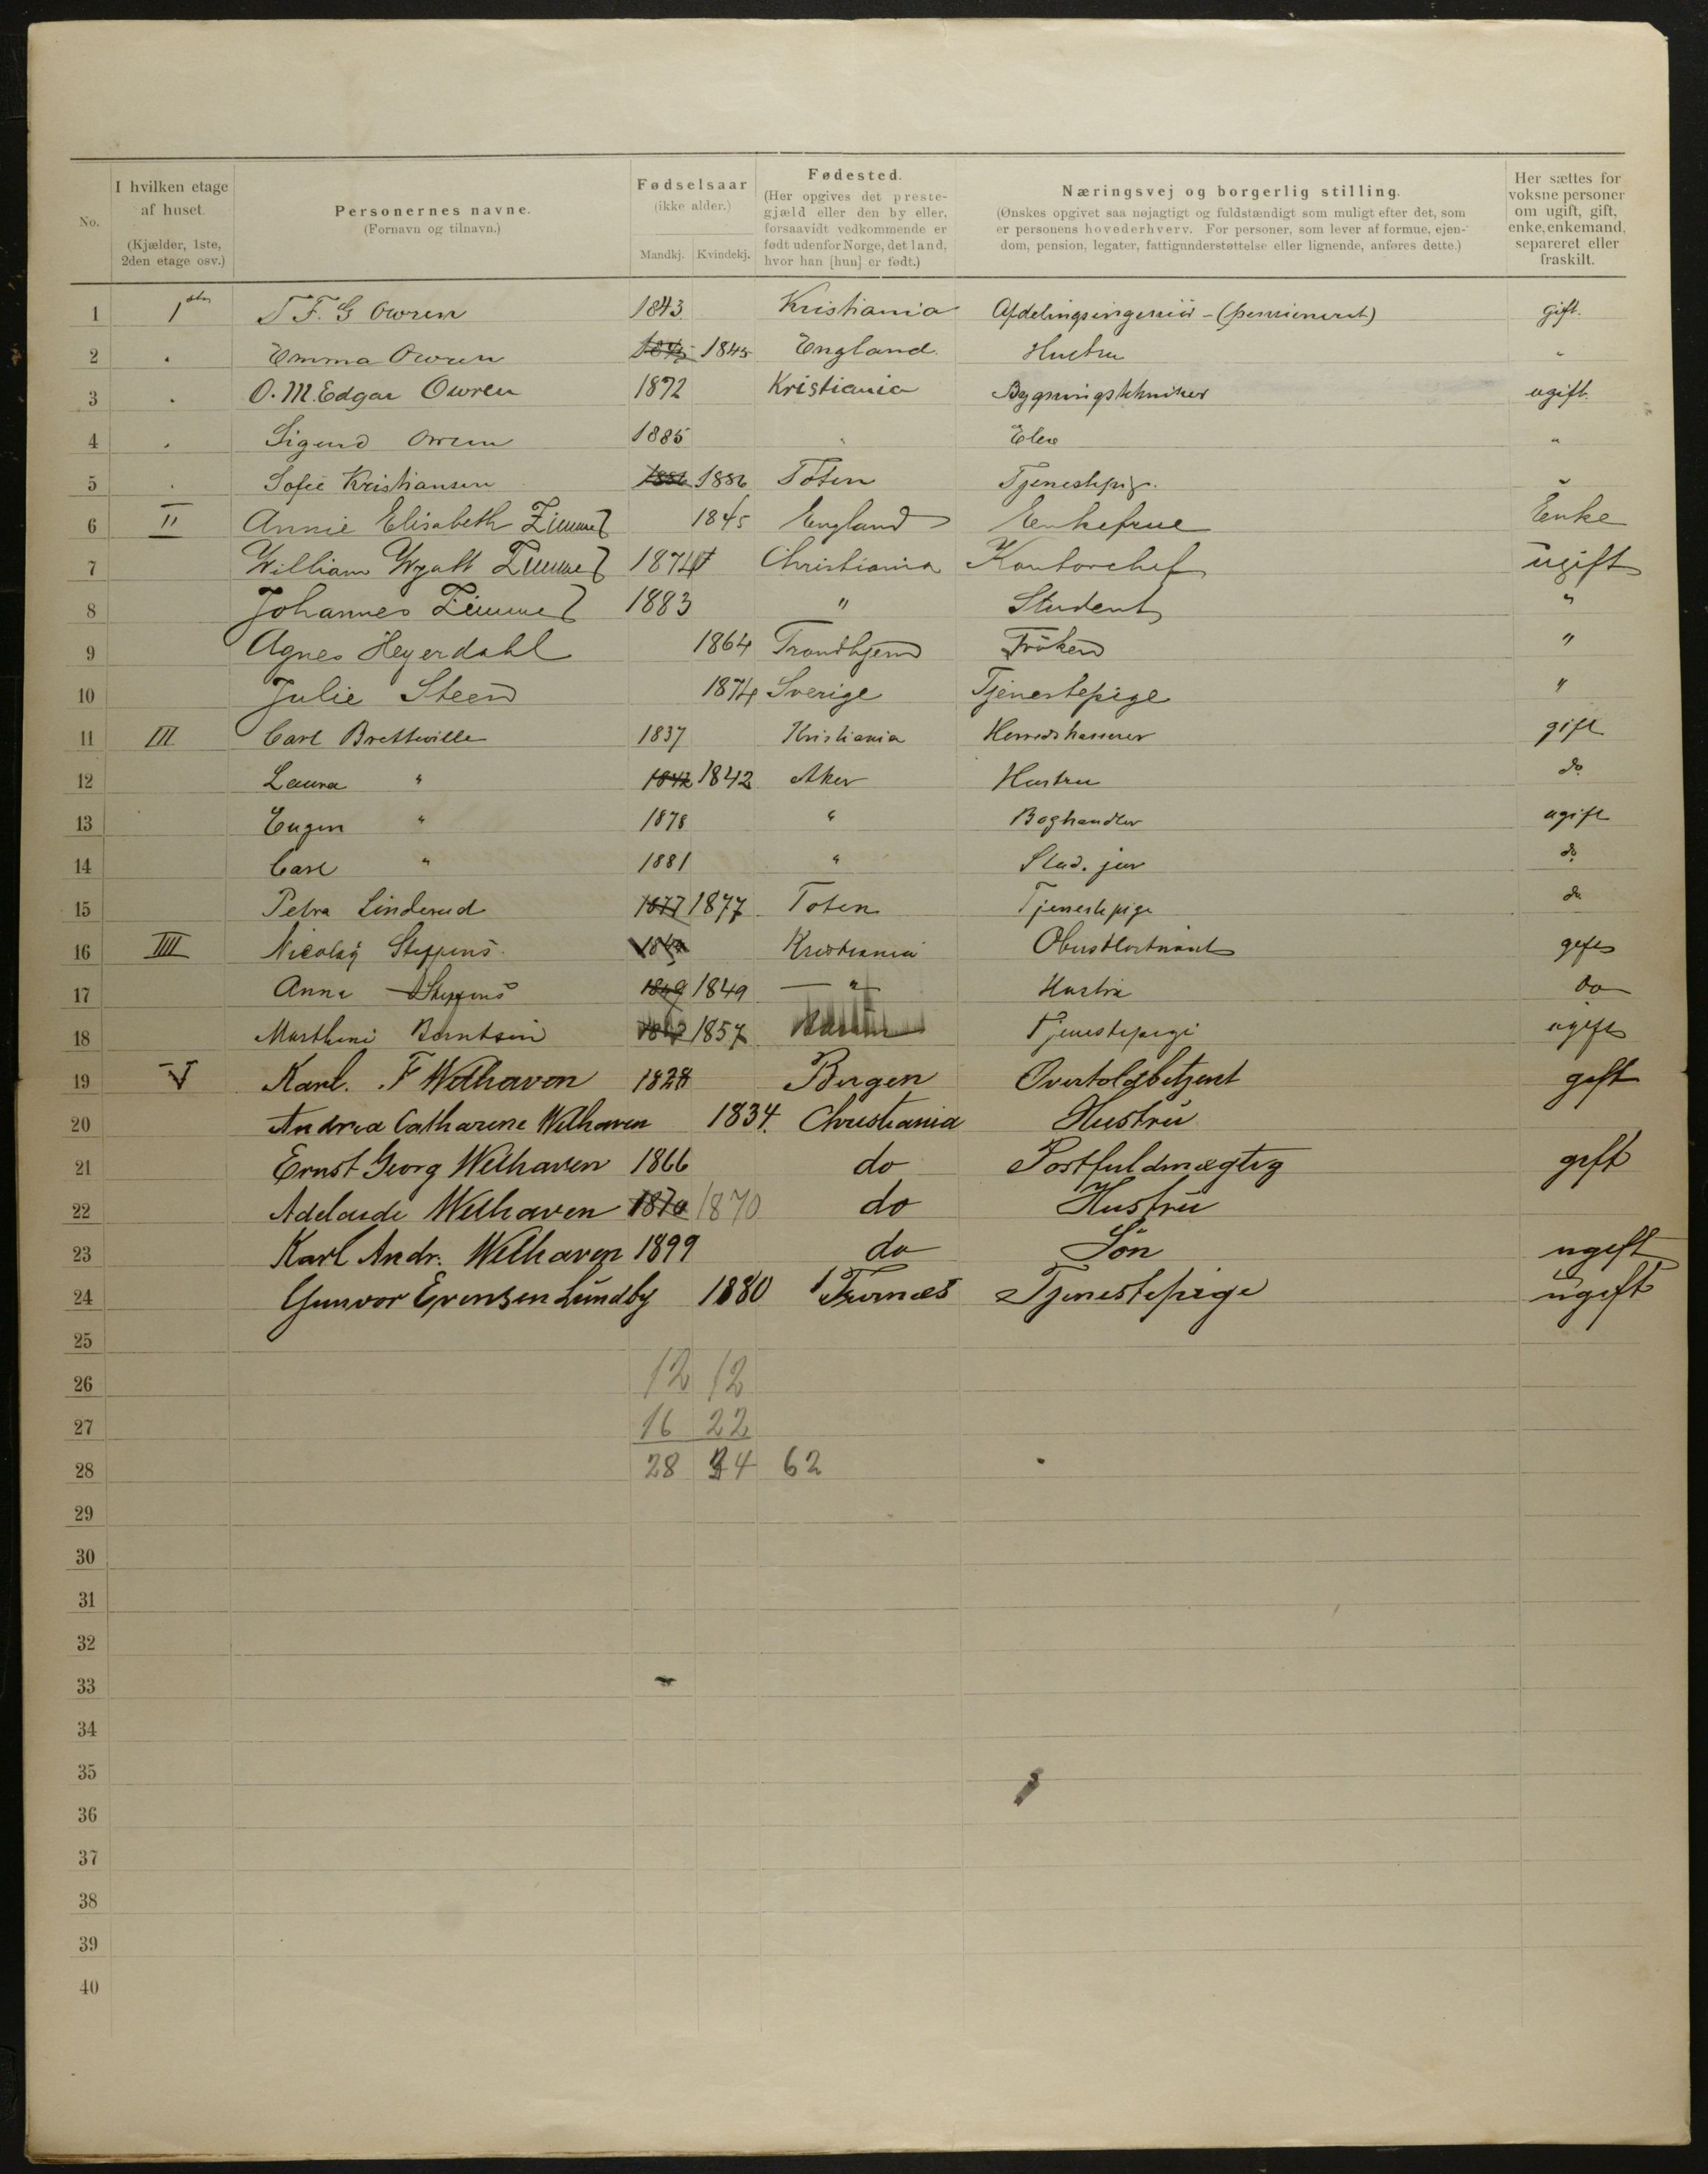 No.
I hvilken etage af huset. (Kjælder, 1ste, 2den etage osv.)
Personernes navne. (Fornavn og tilnavn.)
Fødselsaar (ikke alder.) Mandkj. Kvindekj.
Fødested. (Her opgives det prestegjæld eller den by eller, forsaavidt vedkommende er født udenfor Norge, det land, hvor han [hun] er født.)
Næringsvej og borgerlig stilling. (Ønskes opgivet saa nøjagtigt og fuldstændigt som muligt efter det, som er personens hovederhverv. For personer, som lever af formue, ejendom, pension, legater, fattigunderstøttelse eller lignende, anføres dette.)
Her sættes for voksne personer om ugift, gift, enke, enkemand, separeret eller fraskilt.
1 1ste F. G Owren 1843 Kristiania Afdelingsingeniör - (pensioneret) gift.
2 " Emma Owren 1845 1845 England Hustru "
3 " O. M. Edgar Owren 1872 Kristiania Bygningstekniker ugift.
4 " Sigurd Owren 1885 " Elev "
5 " Sofie Kristiansen 1886 1886 Toten Tjenestepige "
6 II Annie Elisabeth Zimmer 1845 England Enkefrue Enke
7 William Wyatt Zimmer 1874 Christiania Kontorchef ugift
8 Johannes Zimmer 1883 " Student "
9 Agnes Heyerdahl 1864 Trondhjem Fröken "
10 Julie Steen 1874 Sverige Tjenestepige "
11 III Carl Bretteville 1837 Kristiania Herredskasserer gift
12 Laura " 1842 1842 Aker Hustru do
13 Eugen " 1878 " Boghandler ugift
14 Carl " 1881 " Stud. jur do
15 Petra Linderud 1877 1877 Toten Tjenestepige do
16 IIII Nicolay Steffens Kristiania Oberstløitnant gift
17 Anna Steffens 1849 1849 — " — Hustru do
18 Marthini Berntsen 1857 Tjenestepige ugift
19 V Karl. F Welhaven 1828 Bergen Overtoldbetjent gift
20 Andrea Catharine Welhaven 1834. Christiania Hustru
21 Ernst Georg Welhaven 1866 do Postfuldmægtig gift
22 Adelaide Welhaven 1870 1870 do Hustru
23 Karl Andr. Welhaven 1899 do Sön ugift
24 Gunvor Evensen Lundby 1880 Furnes Tjenestepige ugift
25
26 12 12
27 16 22
28 28 34 62
29
30
31
32
33
34
35
36
37
38
39
40